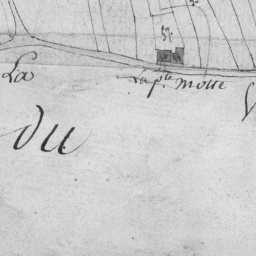 La
La p.te Motte
du